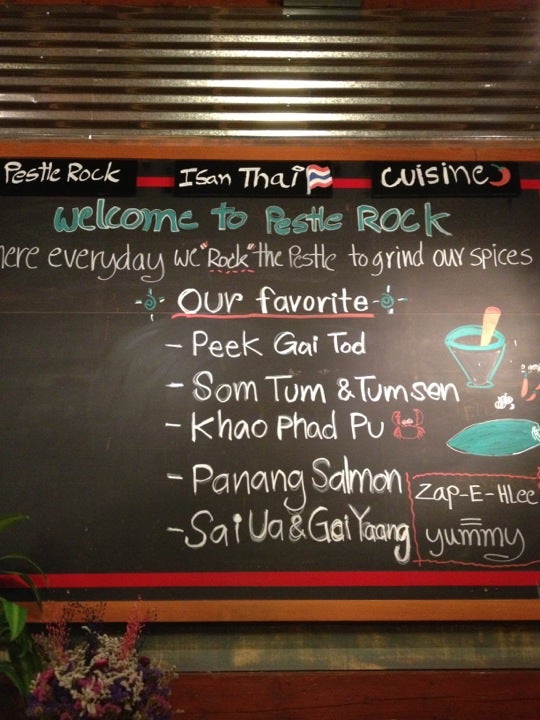 Pestle Rock Isan Thai Cuisine
Welcome to Pestle Rock
everyday we "Rock" the Pestle to grind our spices
Our favorite
- Peek Gai Tod
- Som Tum & Tumsen
- Khao Phad Pu
- Panang Salmon
- Sai Ua & Gai Yaang
Zap-E-HLee
yummy